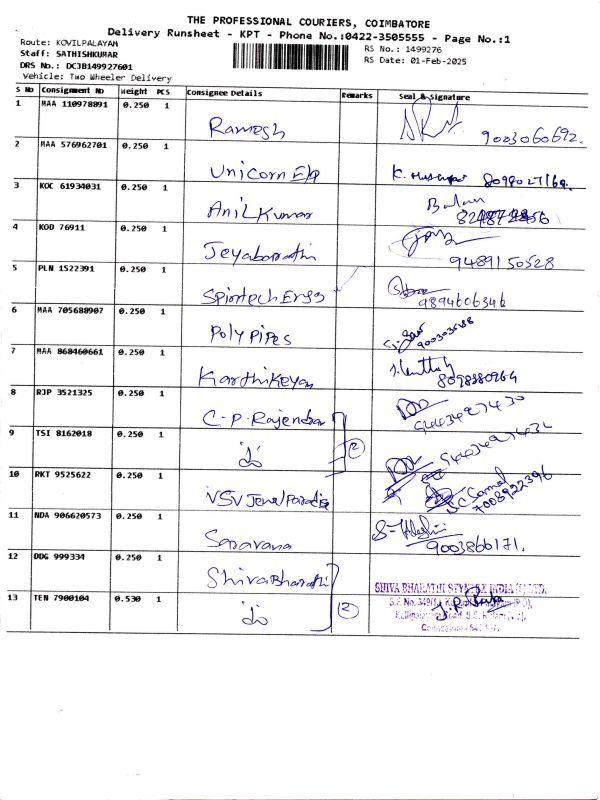 THE PROFESSIONAL COURIERS, COIMBATORE
Delivery Runsheet - KPT - Phone No.:0422-3505555 - Page No.:1
Route: KOVILPALAYAM
RS No.: 1499276
Staff: SATHISHKUMAR
RS Date: 01-Feb-2025
DRS No.: DCJB149927601
Vehicle: Two Wheeler Delivery
S No Consignment No Weight PCS Consignee Details Remarks Seal & Signature
1 MAA 110978891 0.250 1
Ramesh 9003060692.
2 MAA 576962701 0.250 1
Unicorn E/p K.
3 KOC 61934031 0.250 1
Anil Kumar
4 KOD 76911 0.250 1
Jeyabarathi 9489150528
5 PLN 1522391 0.250 1
9894606346
6 MAA 705688907 0.250 1
Poly pipes
7 MAA 868460661 0.250 1
Karthikeyan 8098880964
8 RJP 3521325 0.250 1
C.P. Rajendran 9443427430
9 TSI 8162018 0.250 1
do 2
10 RKT 9525622 0.250 1
VSV Jewel Paradise 7008922396
11 NDA 906620573 0.250 1
Saravana 9003866171.
12 DDG 999334 0.250 1
Shiva Bharathi
SHIVA BHARATHI SYNTEX INDIA (P) LTD.
13 TEN 7900104 0.530 1
do 2
S.F. No. 349/1,
Coimbatore